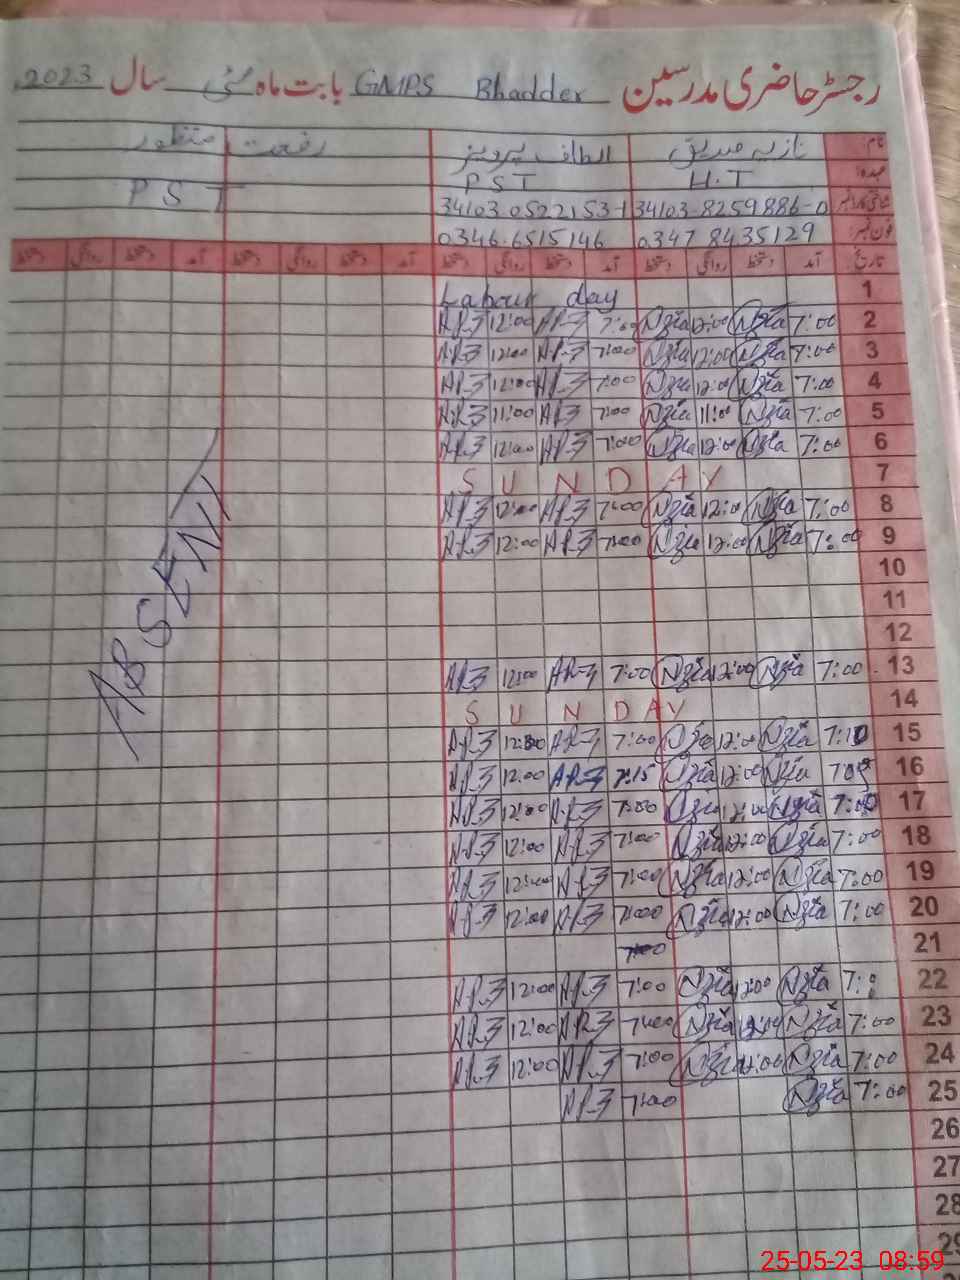 رجسٹر حاضری مدرسین GMPS Bhadder بابت ماہ مئی سال 2023
نام: نازیہ صدیق الطاف پرویز رفعت منظور
عہدہ: H.T PST PST
34103-8259886-0 34103-0522153-1
فون نمبر: 0347 8435129 0346-6515146
تاریخ آمد دستخط روانگی دستخط آمد دستخط روانگی دستخط آمد دستخط روانگی دستخط آمد دستخط روانگی دستخط
1 Labour day
2 7:00 Nzia 12:00 Nzia 7:00 12:00
3 7:00 Nzia 12:00 Nzia 7:00 12:00
4 7:00 Nzia 12:00 Nzia 7:00 12:00
5 7:00 Nzia 11:00 Nzia 7:00 11:00
6 7:00 Nzia 12:00 Nzia 7:00 12:00
7 SUNDAY
8 7:00 Nzia 12:00 Nzia 7:00 12:00
9 7:00 Nzia 12:00 Nzia 7:00 12:00
10
11
12
13 7:00 Nzia 12:00 Nzia 7:00 12:00
14 SUNDAY
15 Nzia 12:00 Nzia 7:00 12:00
16 Nzia 12:00 Nzia 7:15 12:00
17 7:00 Nzia 12:00 Nzia 7:00 12:00
18 7:00 Nzia 12:00 Nzia 7:00 12:00
19 7:00 Nzia 12:00 Nzia 7:00 12:00
20 7:00 Nzia 12:00 Nzia 7:00 12:00
21
22 Nzia 12:00 Nzia 7:00 12:00
23 7:00 Nzia 12:00 Nzia 7:00 12:00
24 7:00 Nzia 12:00 Nzia 7:00 12:00
25 7:00 Nzia 7:00
26
27
28
29
ABSENT
25-05-23 08:59